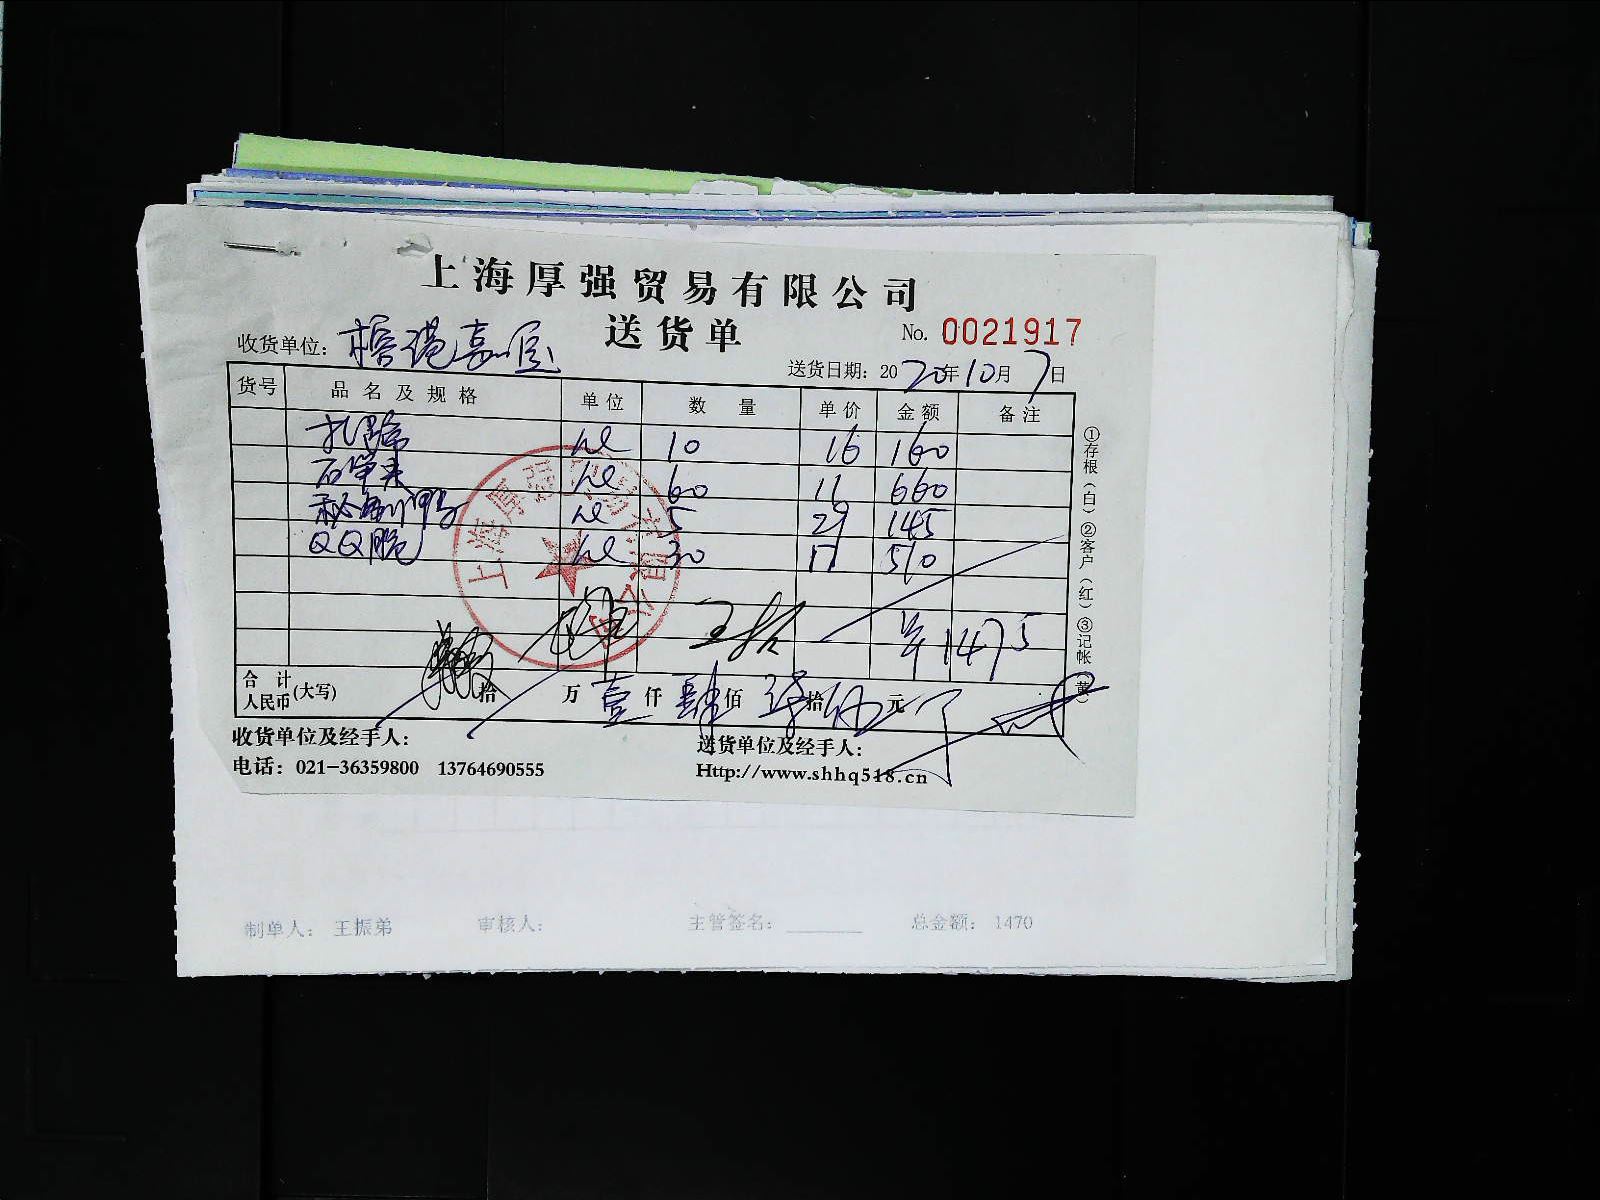 上海厚强贸易有限公司
送货单
No. 0021917
收货单位:
送货日期: 2020年10月7日
货号 品名及规格 单位 数量 单价 金额 备注
扎蹄 10 16 160
石笋尖 60 11 660
秘制鸭 5 29 145
QQ脆 30 17 510
¥1475
合计人民币(大写) 拾 万 壹 仟 肆 佰 柒 拾 伍 元
收货单位及经手人: 送货单位及经手人:
电话: 021-36359800 13764690555 Http://www.shhq518.cn
①存根(白)②客户(红)③记帐(黄)
上海厚强贸易有限公司
制单人: 王振弟 审核人: 主管签名: 总金额: 1470